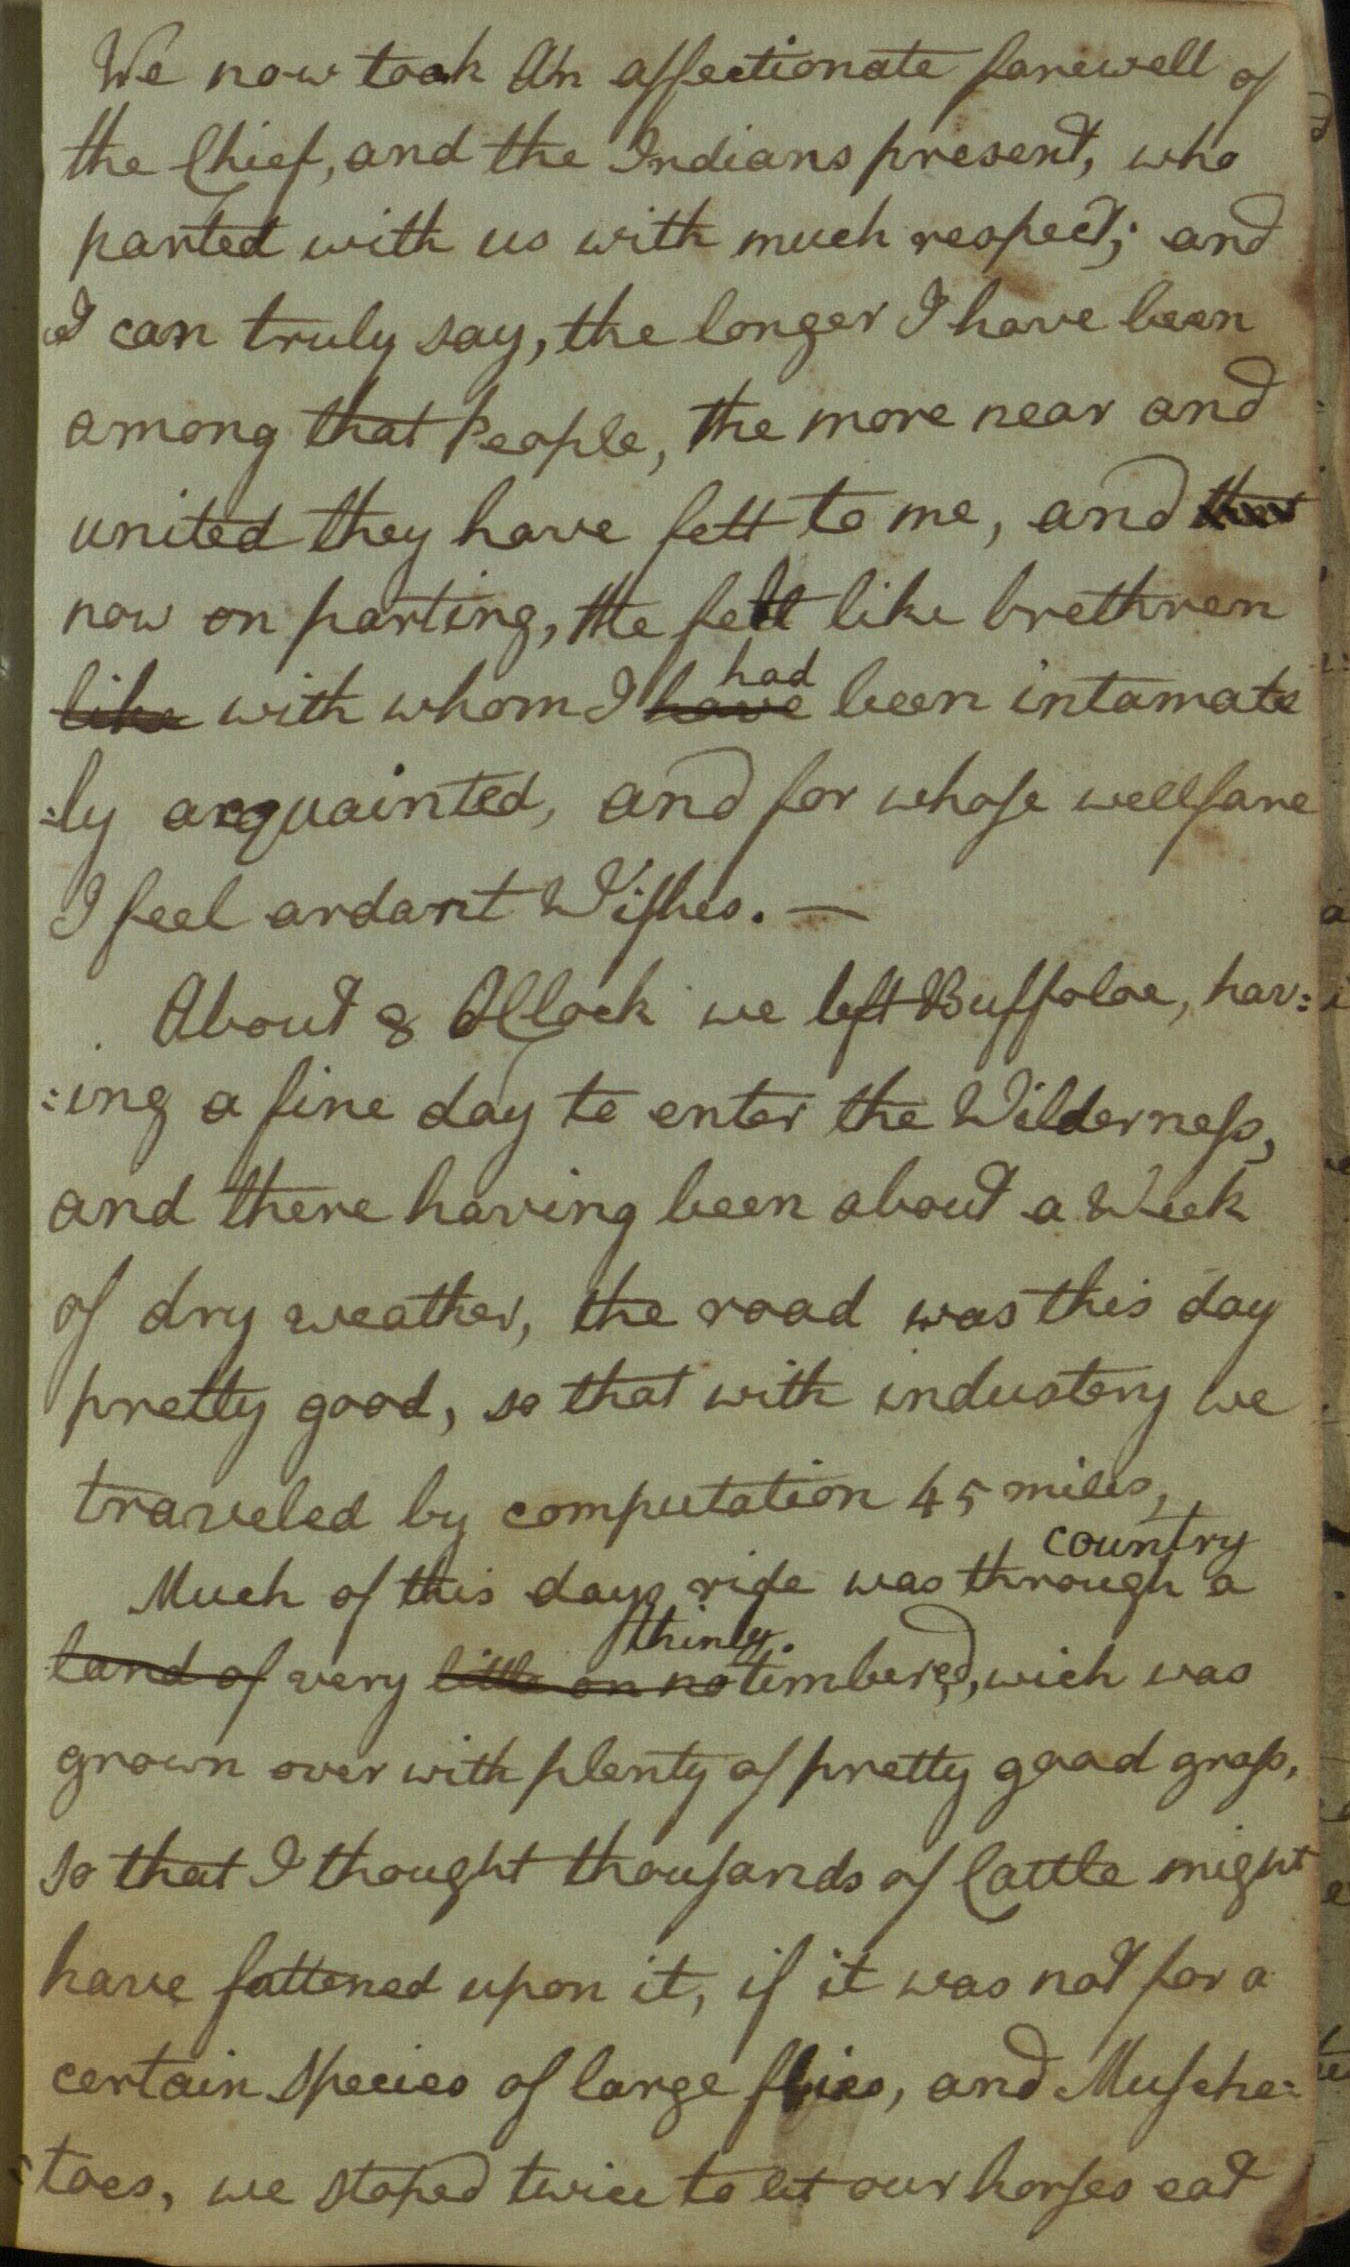 We now took An affectionate farewell of
the Chief, and the Indians present, who
parted with us with much respect; and
I can truly say, the longer I have been
among that People, the more near and
united they have felt to me, and
now on parting, the felt like brethren
like with whom I have had been intamate
:ly acquainted, and for whose wellfare
I feel ardant Wishes. —
About 8 OClock we left Buffaloe, hav:
:ing a fine day to enter the Wilderness,
and there having been about a Week
of dry weather, the road was this day
pretty good, so that with industery we
traveled by computation 45 miles,
country
Much of this days ride was through a
thinly.
land of very little or no timbered, wich was
grown over with plenty of pretty good grass,
so that I thought thousands of Cattle might
have fattened upon it, if it was not for a
certain Species of large flies, and Musche:
:toes, we stoped twice to let our horses eat